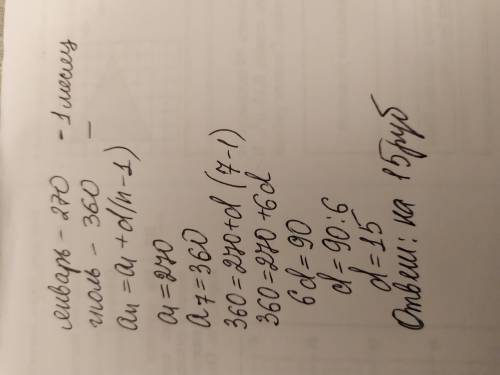 январь – 270 – 1 месяц
июль – 360 –
an = a1 + d(n-1)
a1 = 270
a7 = 360
360 = 270 + d (7-1)
360 = 270 + 6d
6d = 90
d = 90:6
d = 15
Ответ: на 15 руб